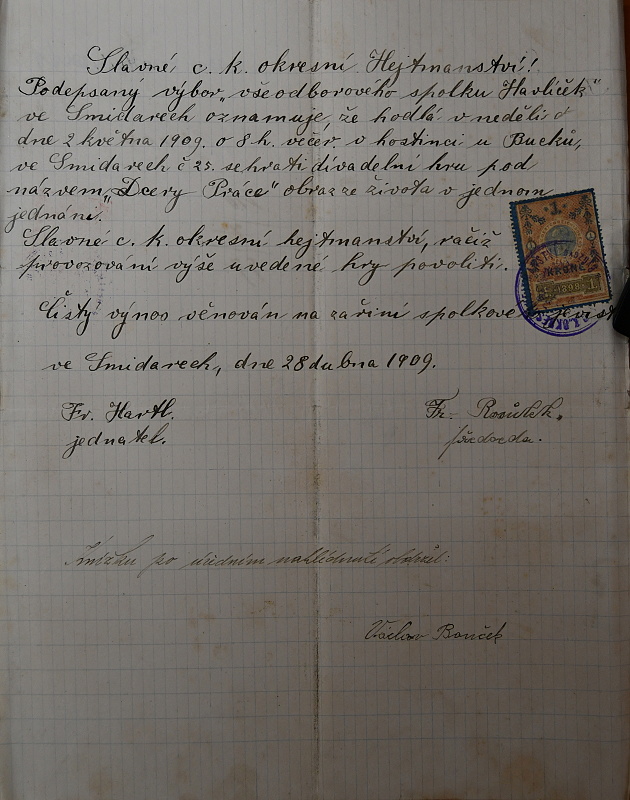 Slavné c. k. okresní Hejtmanství!
Podepsaný výbor „všeodborového spolku Havlíček“
ve Smidarech oznamuje, že hodlá v neděli
dne 2 května 1909. o 8 h. večer, v hostinci u Bucků,
ve Smidarech č 25. sehrati divadelní hru pod
názvem „Dcery Práce“ obraz ze života v jednom
jednání.“
Slavné c. k. okresní hejtmanství, račiž
provozování výše uvedené hry povoliti.
Čistý výnos věnován na zařini spolkove jevist
ve Smidarech, dne 28 dubna 1909.
Fr. Hartl. Fr.
jednatel. předseda.
Knížku po úředním nahlédnutí obdržel:
Václav Bouček
1898